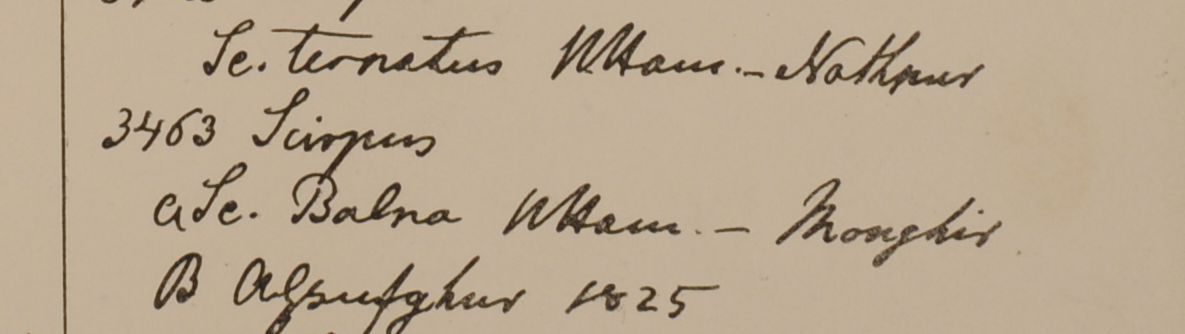 Sc. ternatus HHam. – Nathpur
3463 Scirpus
a Sc. Balna HHam. – Monghir
B Alysufghur 1825